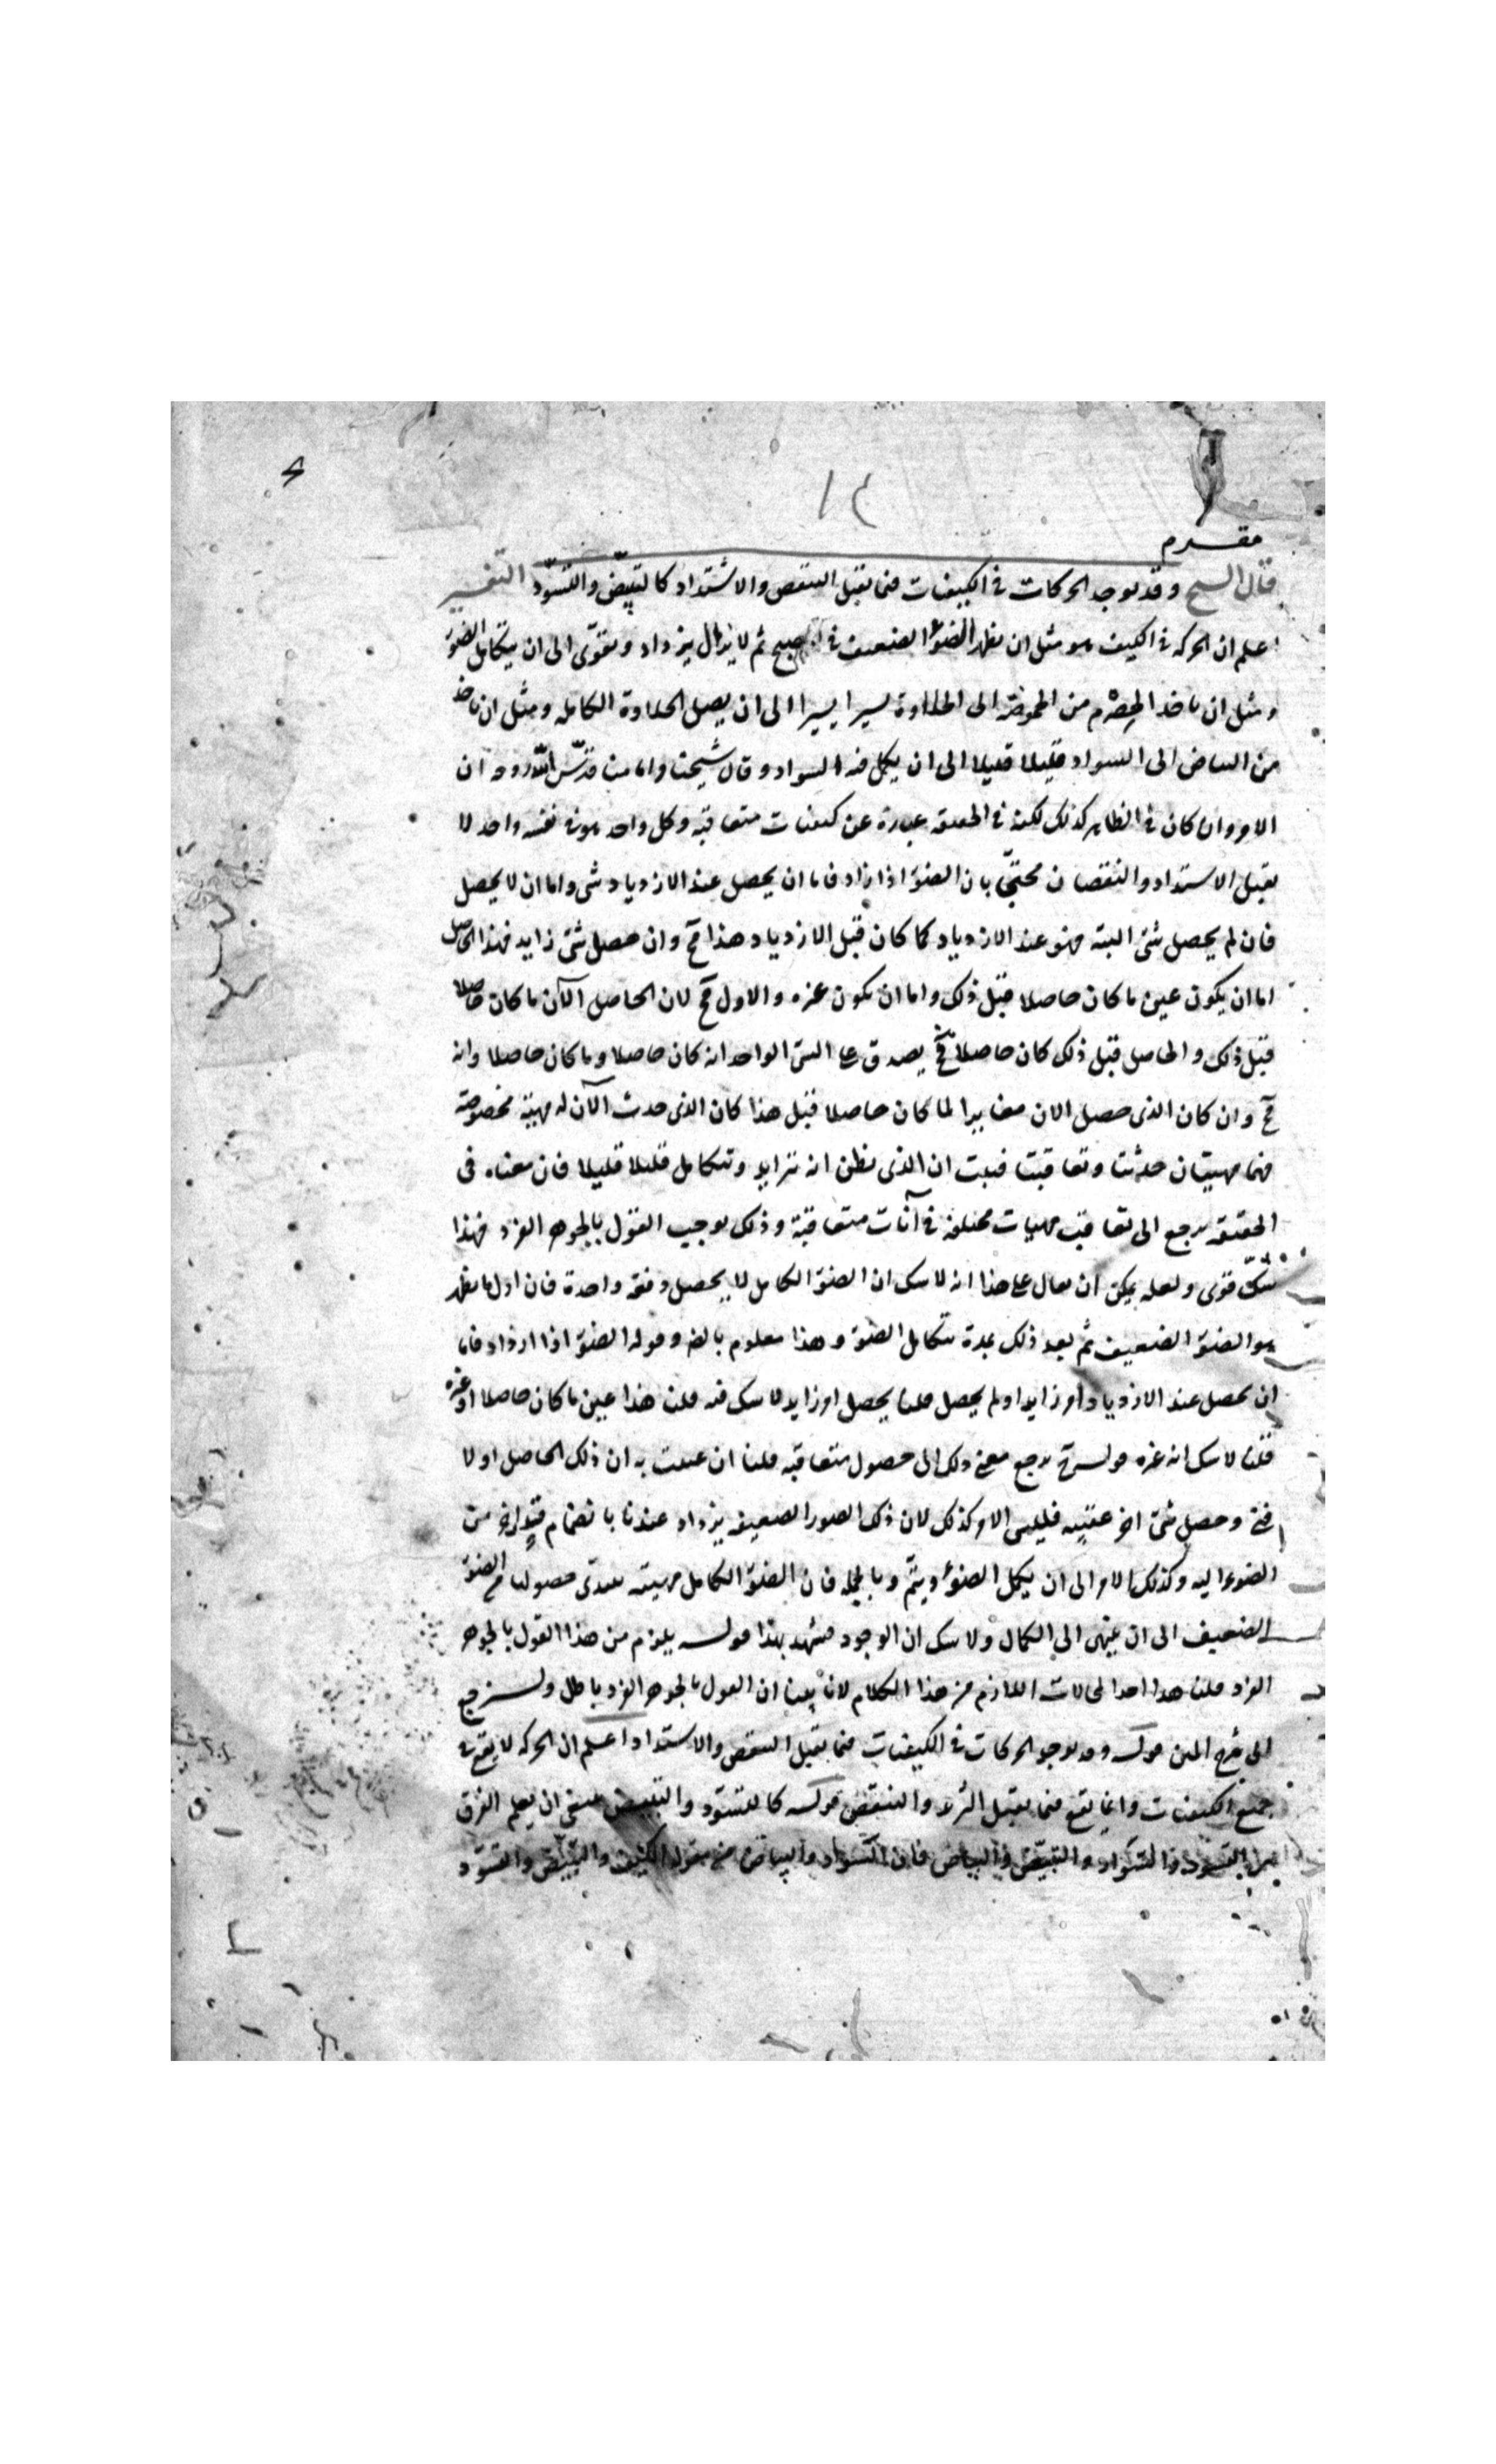 ١٤
مقدم
قال الشيخ وقد يوجد الحركات في الكيفيات فيما يقبل التنقص والاشتداد كالتبيّض والتسوّد التفسير
اعلم ان الحركه في الكيف هو مثل ان يظهر الضوء الضعيف في الصبح ثم لا يزال يزداد ويقوّى الى ان يتكامل الضوء
ومثل ان ياخذ الحِصْرم من الحموضة الى الحلاوة يسيرا يسيرا الى ان يصل الحلاوة الكامله ومثل ان ياخذ
من البياض الى السواد قليلا قليلا الى ان يكمل فيه السواد وقال شيخنا وامامنا قدّس اللّه روحه ان
الامر وان كان في الظاهر كذلك لكنه في الحقيقه عبارة عن كيفيات متعاقبه وكل واحد هو في نفسه واحد لا
يقبل الاشتداد والنقصان محتجّا بان الضوء اذا زاد فاما ان يحصل عند الازدياد شى واما ان لا يحصل
فان لم يحصل شئ البته فهو عند الازدياد كما كان قبل الازدياد هذا مح وان حصل شئ زايد فهذا الحاصل
اما ان يكون عين ما كان حاصلا قبل ذلك واما ان يكون غيره والاول مح لان الحاصل الآن ما كان حاصلا
قبل ذلك والحاصل قبل ذلك كان حاصلا فح يصدق على الشئ الواحد انه كان حاصلا وما كان حاصلا وانه
مح وان كان الذى حصل الان مغايرا لما كان حاصلا قبل هذا كان الذى حدث الآن له مهية مخصوصة
فهما مهيتان حدثتا وتعاقبتا فثبت ان الذى نظن انه تزايد وتتكامل قليلا قليلا فان معناه فى
الحقيقه يرجع الى تعاقب مهيات مختلفه في آنات متعاقبة وذلك يوجب القول بالجوهر الفرد فهذا
شكّ قوى ولعله يمكن ان يقال على هذا انه لا شك ان الضوء الكامل لا يحصل دفعه واحدة فان اول ما يظهر
هو الضوء الضعيف ثم بعد ذلك بمدة يتكامل الضوء وهذا معلوم بالضر وقوله الضوء اذا ازداد فاما
ان يحصل عند الازدياد امر زايد او لم يحصل قلنا يحصل امر زايد لا شك فيه قلت هذا عين ما كان حاصلا او غيره
قلنا لا شك انه غيره قولـه مح يرجع معنى ذلك الى حصول متعاقبه قلنا ان عنيت به ان ذلك الحاصل اولا
فنى وحصل شئ اخر عقيبه فليس الامر كذلك لان ذلك الضوء الضعيف يزداد عندنا بانضمام قدر اخر من
الضوء اليه وكذلك الامر الى ان يكمل الضوء ويتمّ وبالجمله فان الضوء الكامل مهيته يبتدى حصولها مع الضوء
الضعيف الى ان ينتهى الى الكمال ولا شك ان الوجود مشهد بهذا قولـه يلزم من هذا القول بالجوهر
الفرد قلنا هذا احد المحالات اللازم من هذا الكلام لانا بينا ان القول بالجوهر الفرد باطل ولنرجع
الى شرح المتن قولـه وقد يوجد الحركات في الكيفيات فيما يقبل التنقص والاشتداد اعلم ان الحركه لا يقع في
جميع الكيفيات وانما يقع فيما يقبل التزيد والتنقص قولـه كالتسوّد والتبيض ينبغى ان يعلم الفرق
بين التسوّد والسّواد والتبيّض والبياض فان السّواد والبياض من مقوله الكيف والتبيّض والتسوّد